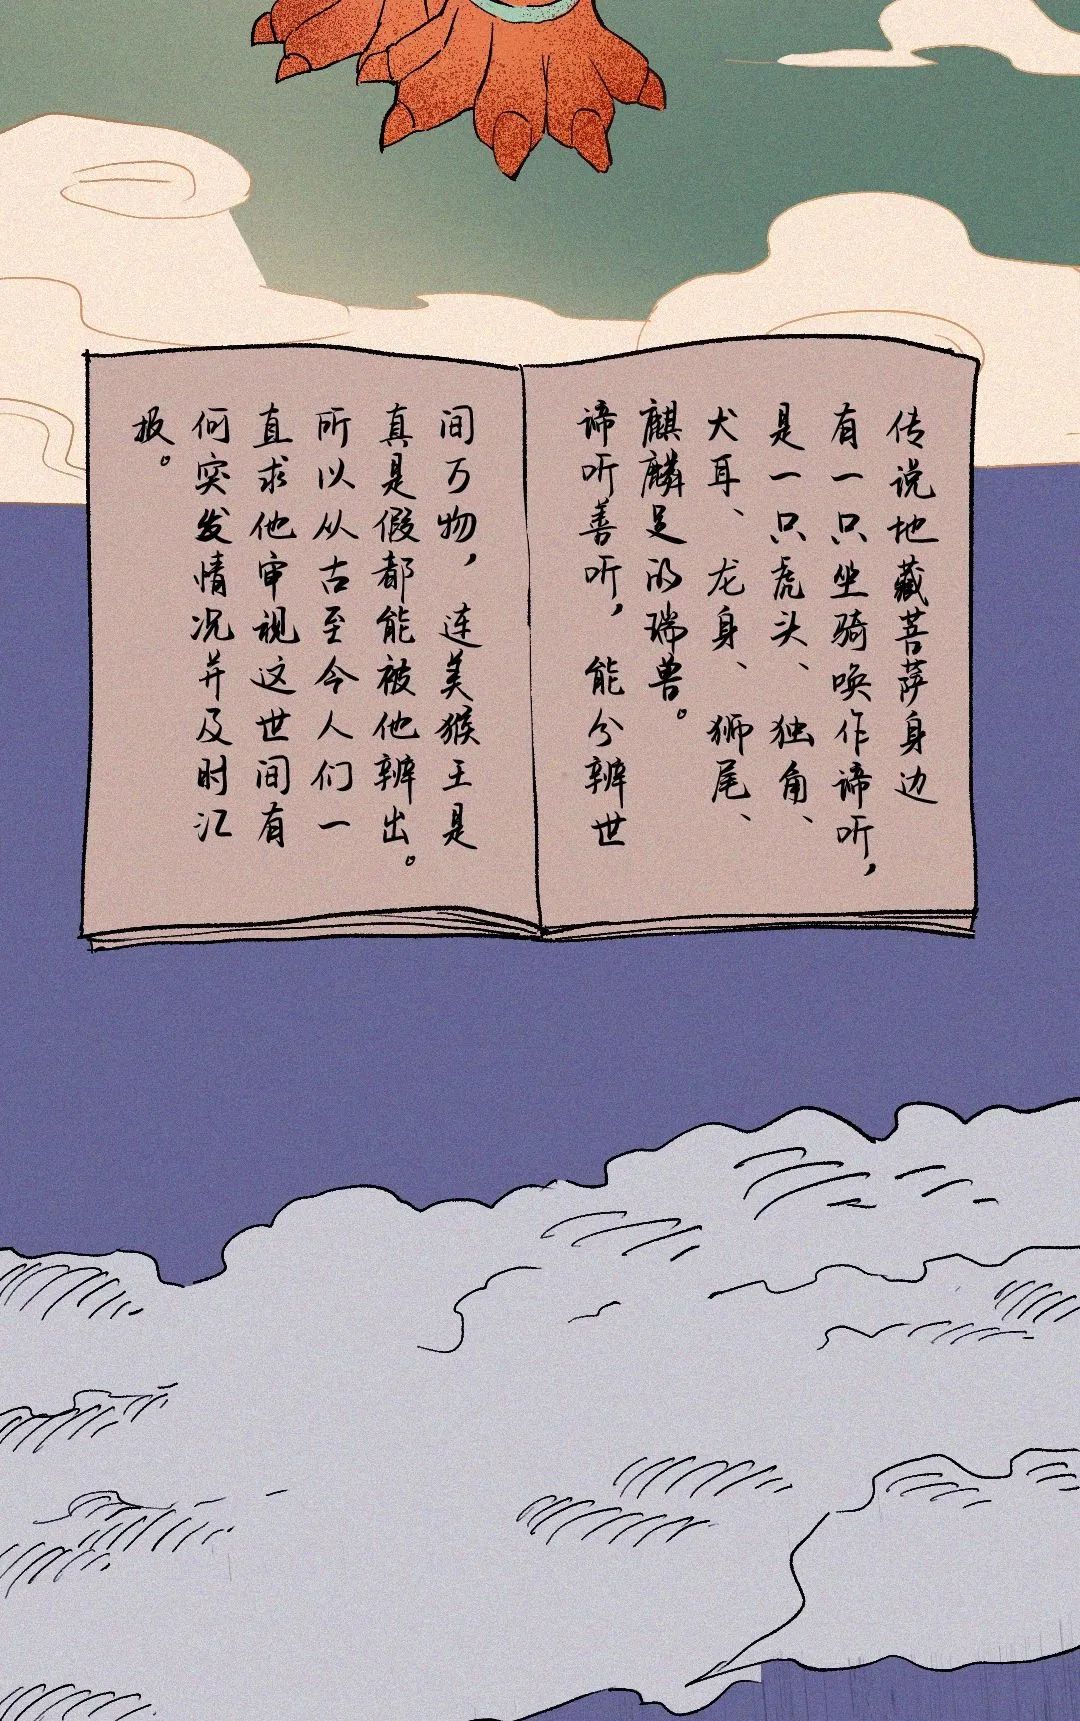 传说地藏菩萨身边
有一只坐骑唤作谛听，
是一只虎头、独角、
犬耳、龙身、狮尾、
麒麟足的瑞兽。
谛听善听，能分辨世
间万物，连美猴王是
真是假都能被他辨出。
所以从古至今人们一
直求他审视这世间有
何突发情况并及时汇
报。